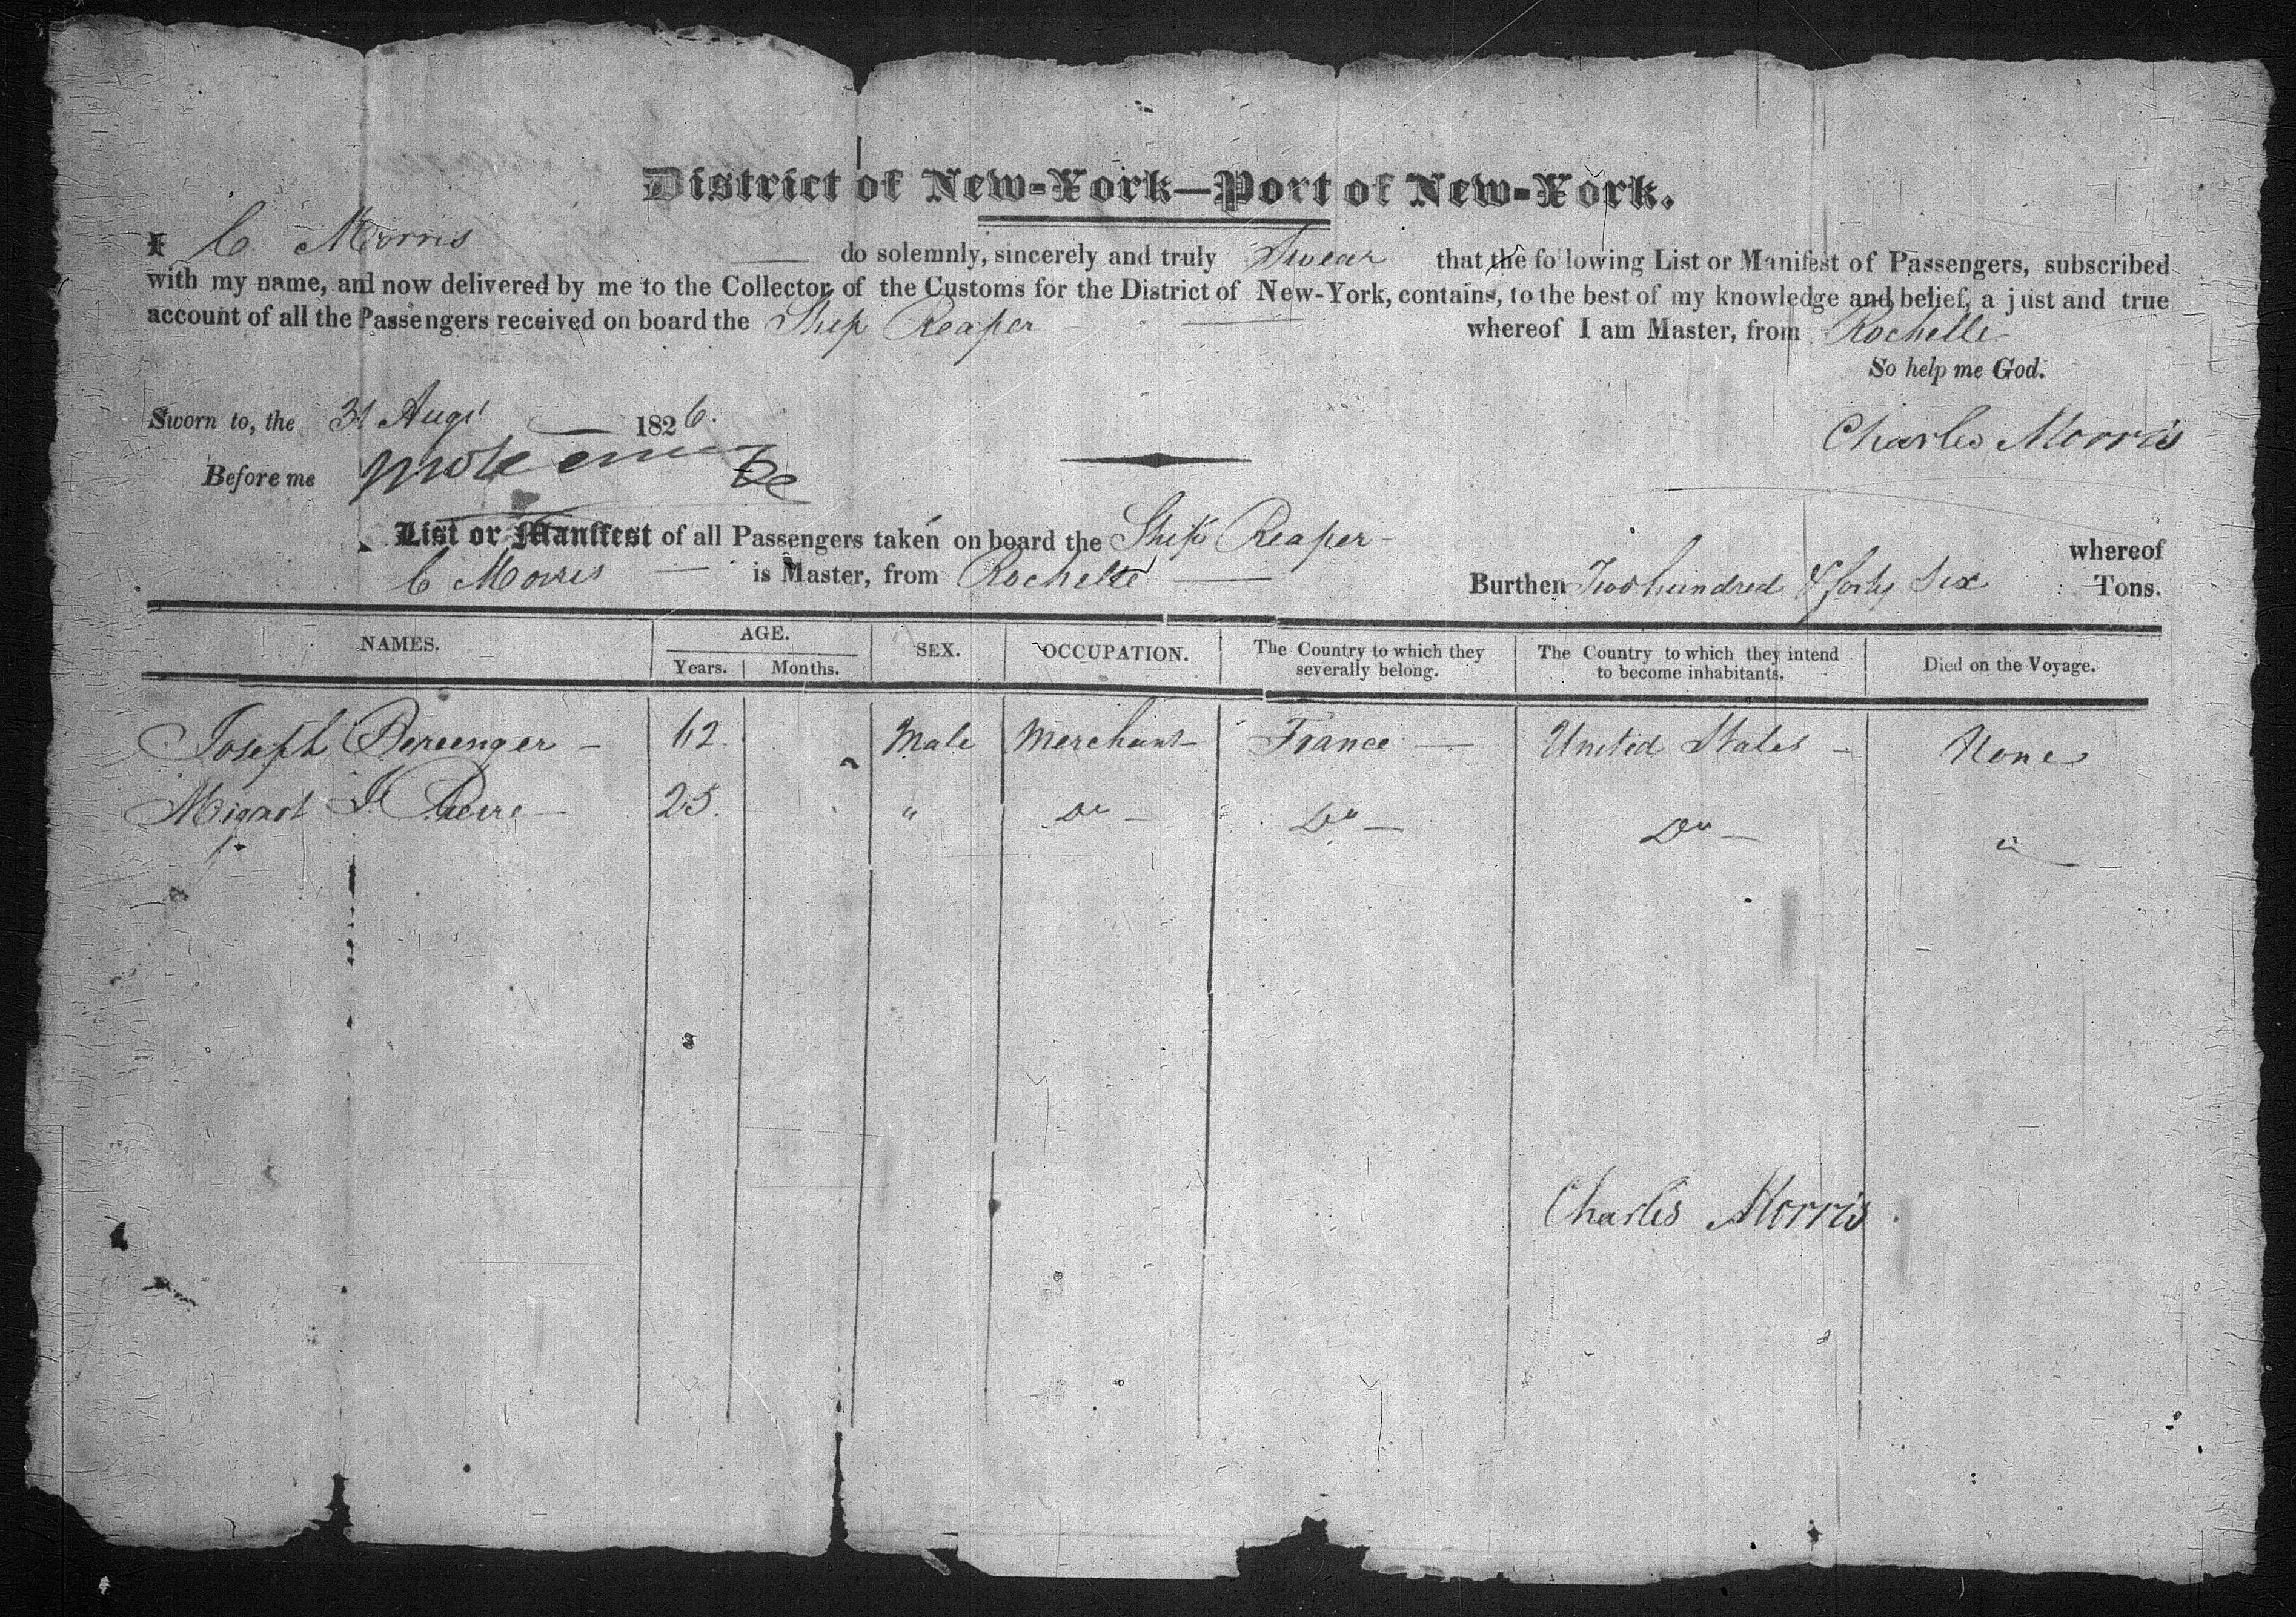 District of New-York—Port of New-York.
I C. Morris do solemnly, sincerely and truly Swear that the following List or Manifest of Passengers, subscribed
with my name, and now delivered by me to the Collector of the Customs for the District of New-York, contains, to the best of my knowledge and belief, a just and true
account of all the Passengers received on board the Ship Reaper whereof I am Master, from Rochelle
So help me God.
Sworn to, the 31 Augt 1826.
Charles Morris
Before me
List or Manifest of all Passengers taken on board the Ship Reaper whereof
C Morris is Master, from Rochelle Burthen Two hundred & forty Six Tons.
NAMES. AGE. Years. Months. SEX. OCCUPATION. The Country to which they severally belong. The Country to which they intend to become inhabitants. Died on the Voyage.
Joseph Berenger — 62. Male Merchant France — United States — None
Mignot J. Pierre — 25. " Do — Do — Do — "
Charles Morris